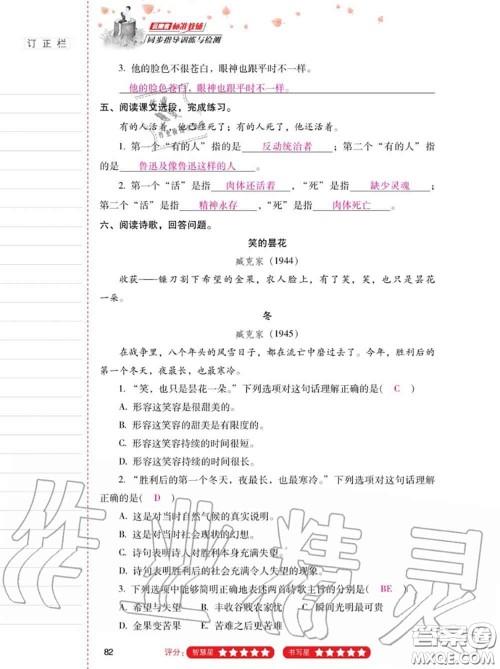 订正栏
云南省标准教辅
同步指导训练与检测
3. 他的脸色不很苍白，眼神也跟平时不一样。
他的脸色苍白，眼神也跟平时不一样。
五、阅读课文选段，完成练习。
有的人活着，他已经死了；有的人死了，他还活着。
1. 第一个“有的人”指的是 反动统治者 ；第二个“有的人”指
的是 鲁迅及像鲁迅这样的人 。
2. 第一个“活”是指 肉体还活着 ，“死”是指 缺少灵魂 ；
第二个“活”是指 精神永存 ，“死”是指 肉体死亡 。
六、阅读诗歌，回答问题。
笑的昙花
臧克家（1944）
收获——镰刀割下希望的金果，农人脸上，有了笑，笑，也只是昙花
一朵。
冬
臧克家（1945）
在战争里，八个年头的风雪日子，都在流亡中磨过去了。今年，胜利后
的第一个冬天，夜最长，也最寒冷。
1. “笑，也只是昙花一朵。”下列选项对这句话理解正确的是( C )
A. 形容这笑容是很甜美的。
B. 形容这笑容的甜美是有限度的。
C. 形容这笑容持续的时间很短。
D. 形容这笑容持续的时间很长。
2. “胜利后的第一个冬天，夜最长，也最寒冷。”下列选项对这句话理解
正确的是( D )
A. 这是对当时自然气候的真实说明。
B. 这是对当时社会现状的幻想。
C. 诗句表明诗人对胜利本身充满失望。
D. 诗句表明诗人对胜利后的社会充满令人失望的现象。
3. 下列选项中能够简明正确地表述两首诗歌主旨的分别是( BE )
A. 希望与失望 B. 丰收后贱农家忧 C. 瞬间光明最可贵
D. 金果变苦果 E. 苦难之后更苦难
82 评分： 智慧星 ★★★★★★ 书写星 ★★★★★★
作业精灵
答案圈
MXQE.COM